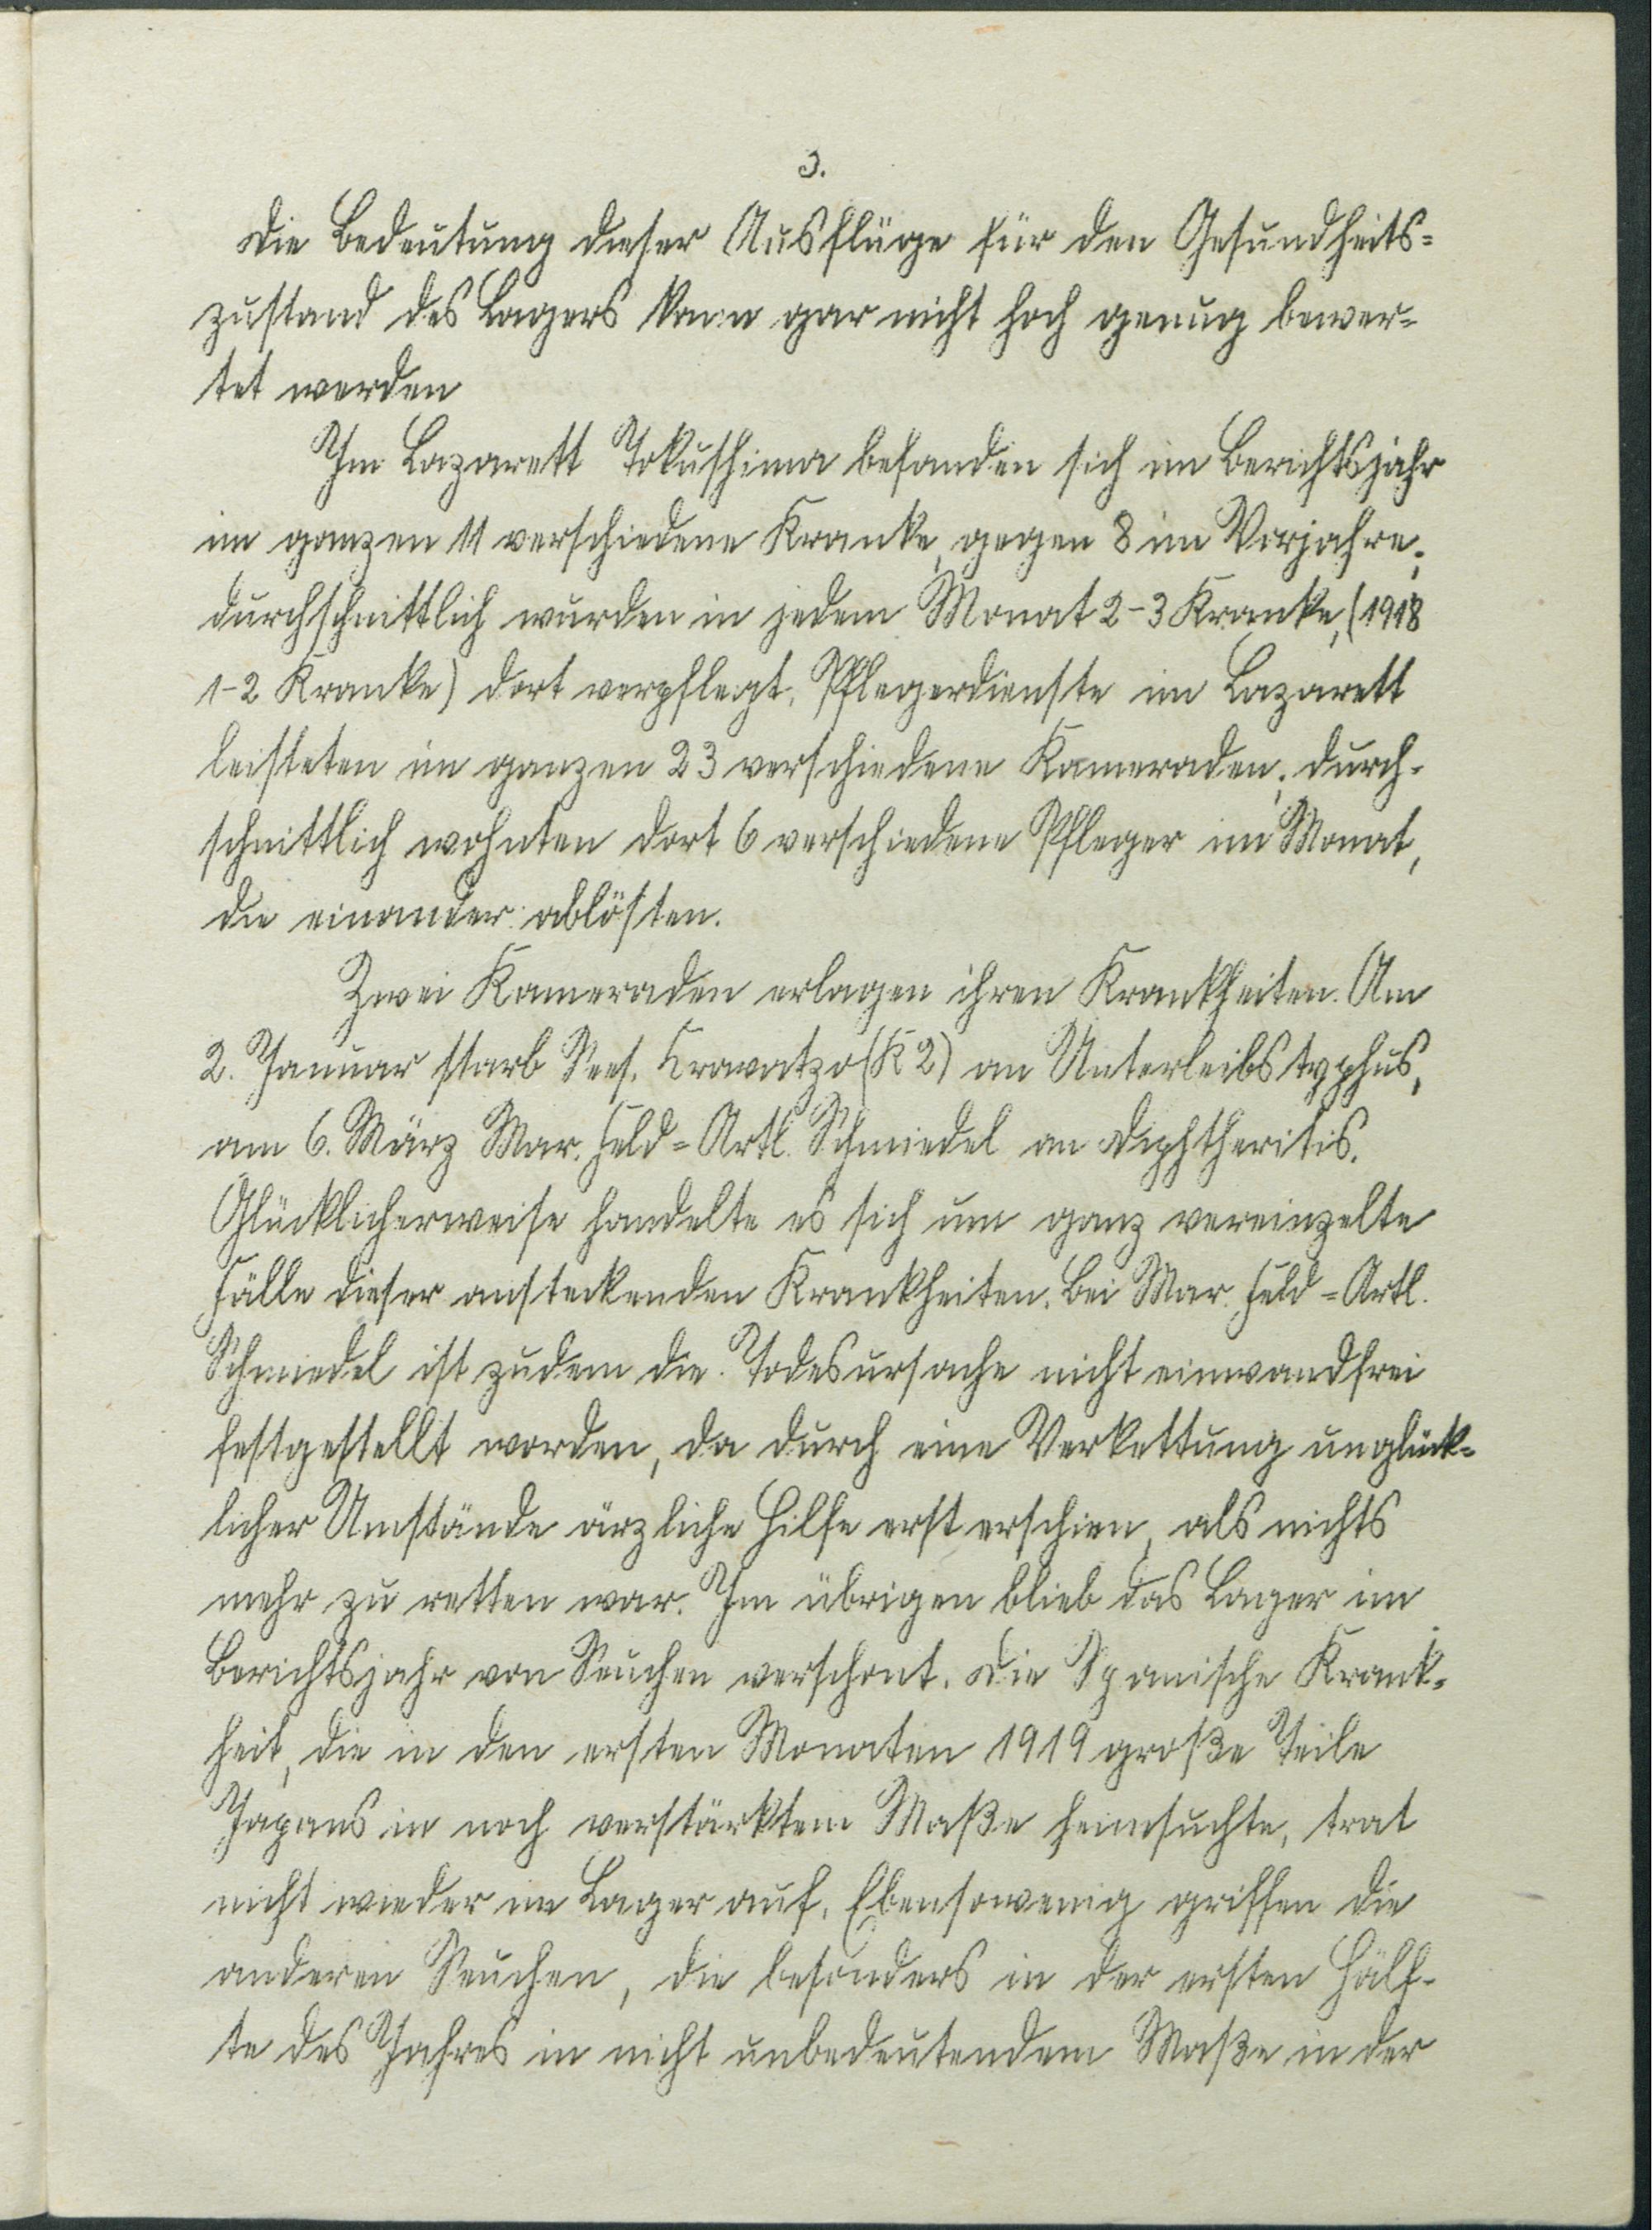 3.
Die Bedeutung dieser Ausflüge für den Gesundheits=
zustand des Lagers kann gar nicht hoch genug bewer=
tet werden
Im Lazarett Tokushima befanden sich im Berichtsjahr
im ganzen 11 verschiedene Kranke, gegen 8 im Vorjahre;
durchschnittlich wurden in jedem Monat 2-3 Kranke, (1918
1-2 Kranke) dort verpflegt. Pflegerdienste im Lazarett
leisteten im ganzen 23 verschiedene Kameraden; durch-
schnittlich wohnten dort 6 verschiedene Pfleger im Monat,
die einander ablösten.
Zwei Kameraden erlagen ihren Krankheiten. Am
2. Januar starb Sees. Krawatzo (K 2) an Unterleibstyphus,
am 6. März Mar. Feld=Artl. Schmiedel an Diphtheritis.
Glücklicherweise handelte es sich um ganz vereinzelte
Fälle dieser ansteckenden Krankheiten. Bei Mar. Feld=Artl.
Schmiedel ist zudem die Todesursache nicht einwandfrei
festgestellt worden, da durch eine Verkettung unglück=
licher Umstände ärzliche Hilfe erst erschien, als nichts
mehr zu retten war. Im übrigen blieb das Lager im
Berichtsjahr von Seuchen verschont. Die Spanische Krank-
heit, die in den ersten Monaten 1919 große Teile
Japans in noch verstärktem Maße heimsuchte, trat
nicht wieder im Lager auf. Ebensowenig griffen die
anderen Seuchen, die besonders in der ersten Hälf-
te des Jahres in nicht unbedeutendem Maße in der